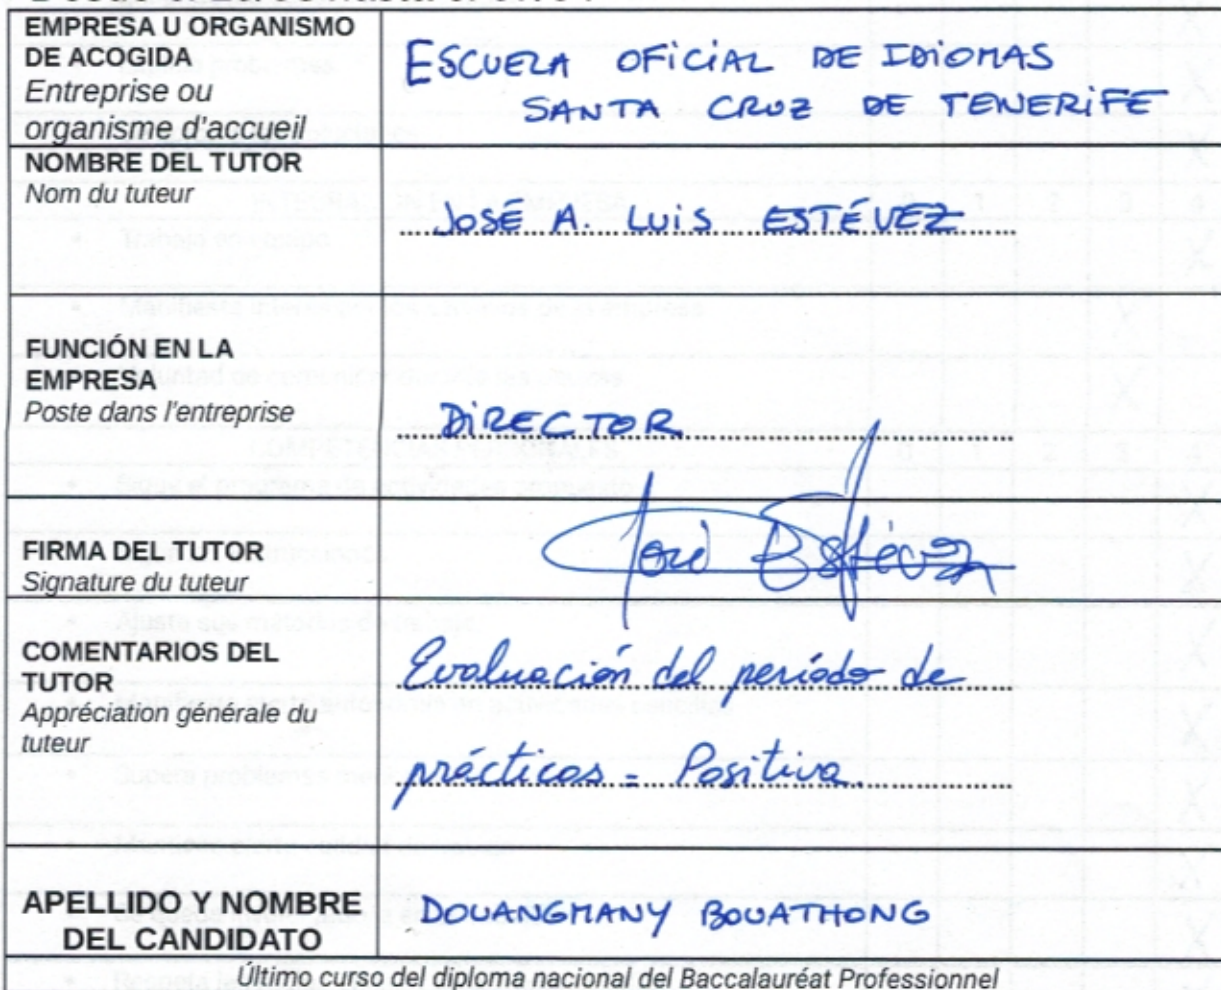 EMPRESA U ORGANISMO
DE ACOGIDA
Entreprise ou
organisme d'accueil
ESCUELA OFICIAL DE IDIOMAS
SANTA CRUZ DE TENERIFE
NOMBRE DEL TUTOR
Nom du tuteur
JOSÉ A. LUIS ESTÉVEZ
FUNCIÓN EN LA
EMPRESA
Poste dans l'entreprise
DIRECTOR
FIRMA DEL TUTOR
Signature du tuteur
José Estévez
COMENTARIOS DEL
TUTOR
Appréciation générale du
tuteur
Evaluación del período de
prácticas = Positiva
APELLIDO Y NOMBRE
DEL CANDIDATO
DOUANGMANY BOUATHONG
Último curso del diploma nacional del Baccalauréat Professionnel